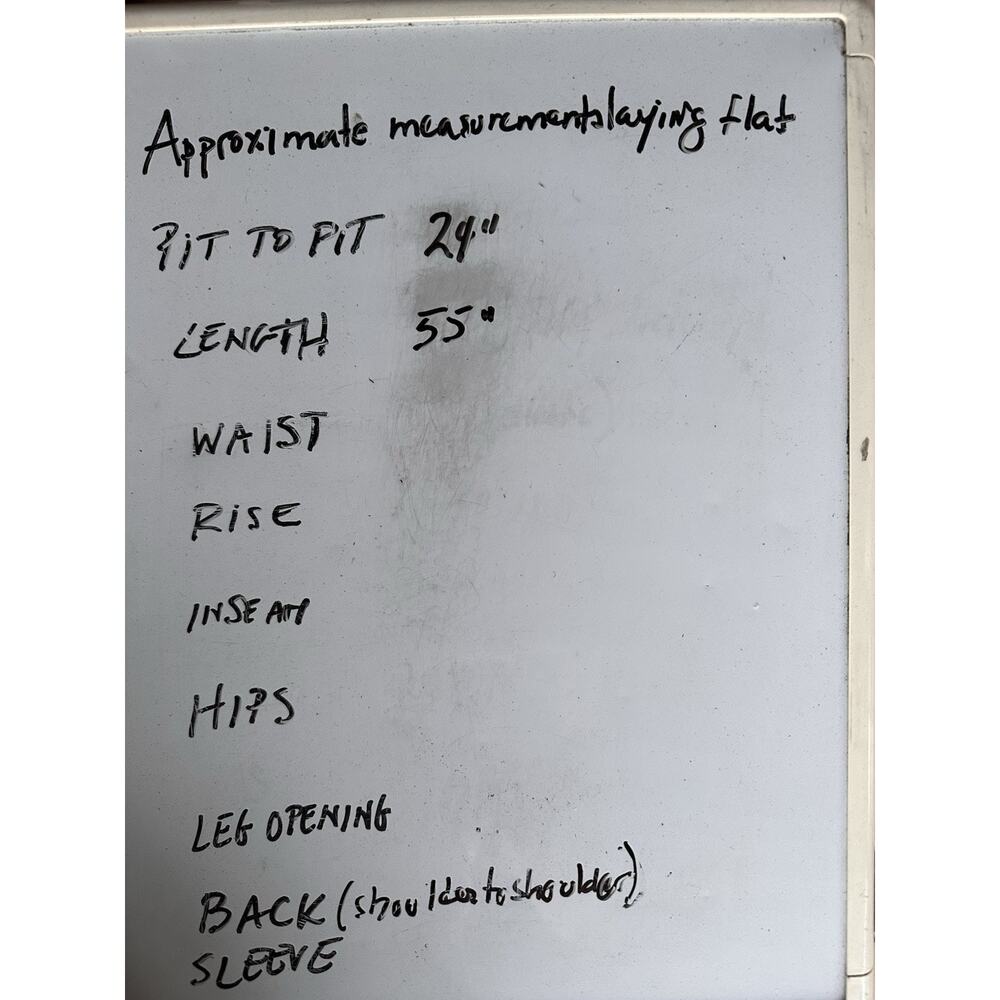 Approximate measurements laying flat
PIT TO PIT 24"
LENGTH 55"
WAIST
RISE
INSEAM
HIPS
LEG OPENING
BACK (shoulder to shoulder)
SLEEVE